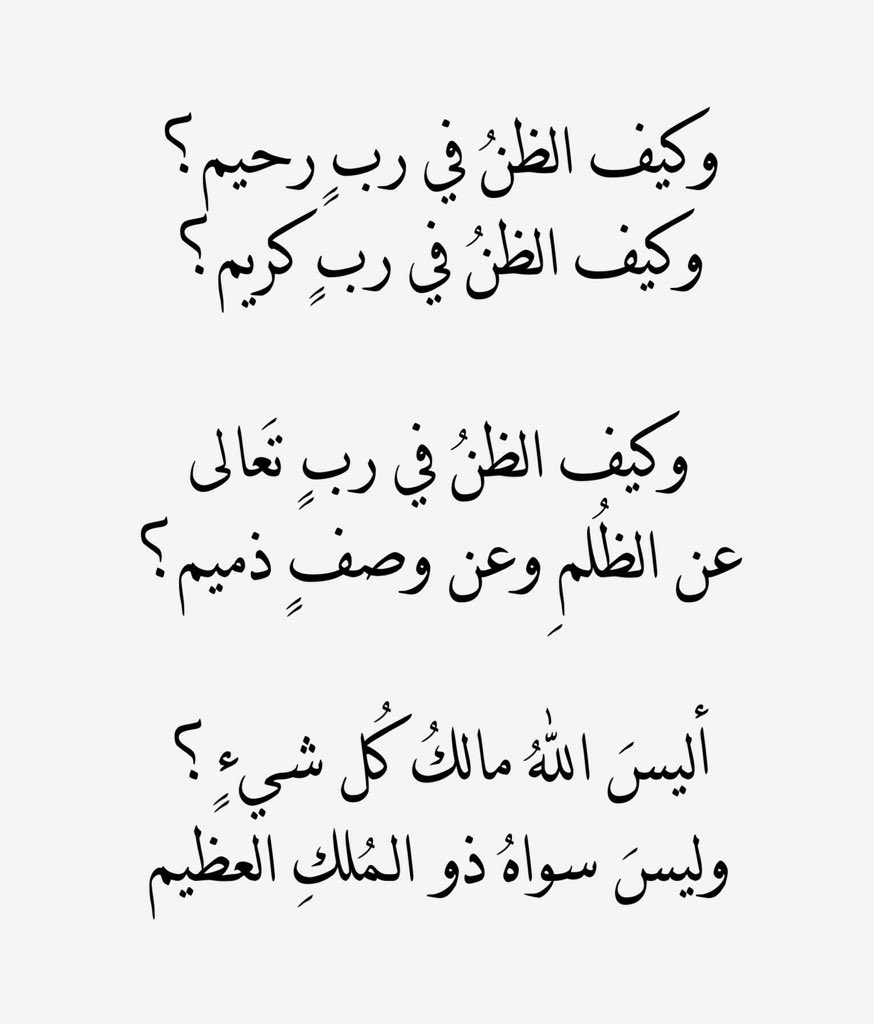 وكيف الظنُ في ربٍ رحيم؟
وكيف الظنُ في ربٍ كريم؟
وكيف الظنُ في ربٍ تَعالى
عن الظُلمِ وعن وصفٍ ذميم؟
أليسَ اللهُ مالكُ كُل شيءٍ؟
وليسَ سواهُ ذو المُلكِ العظيم